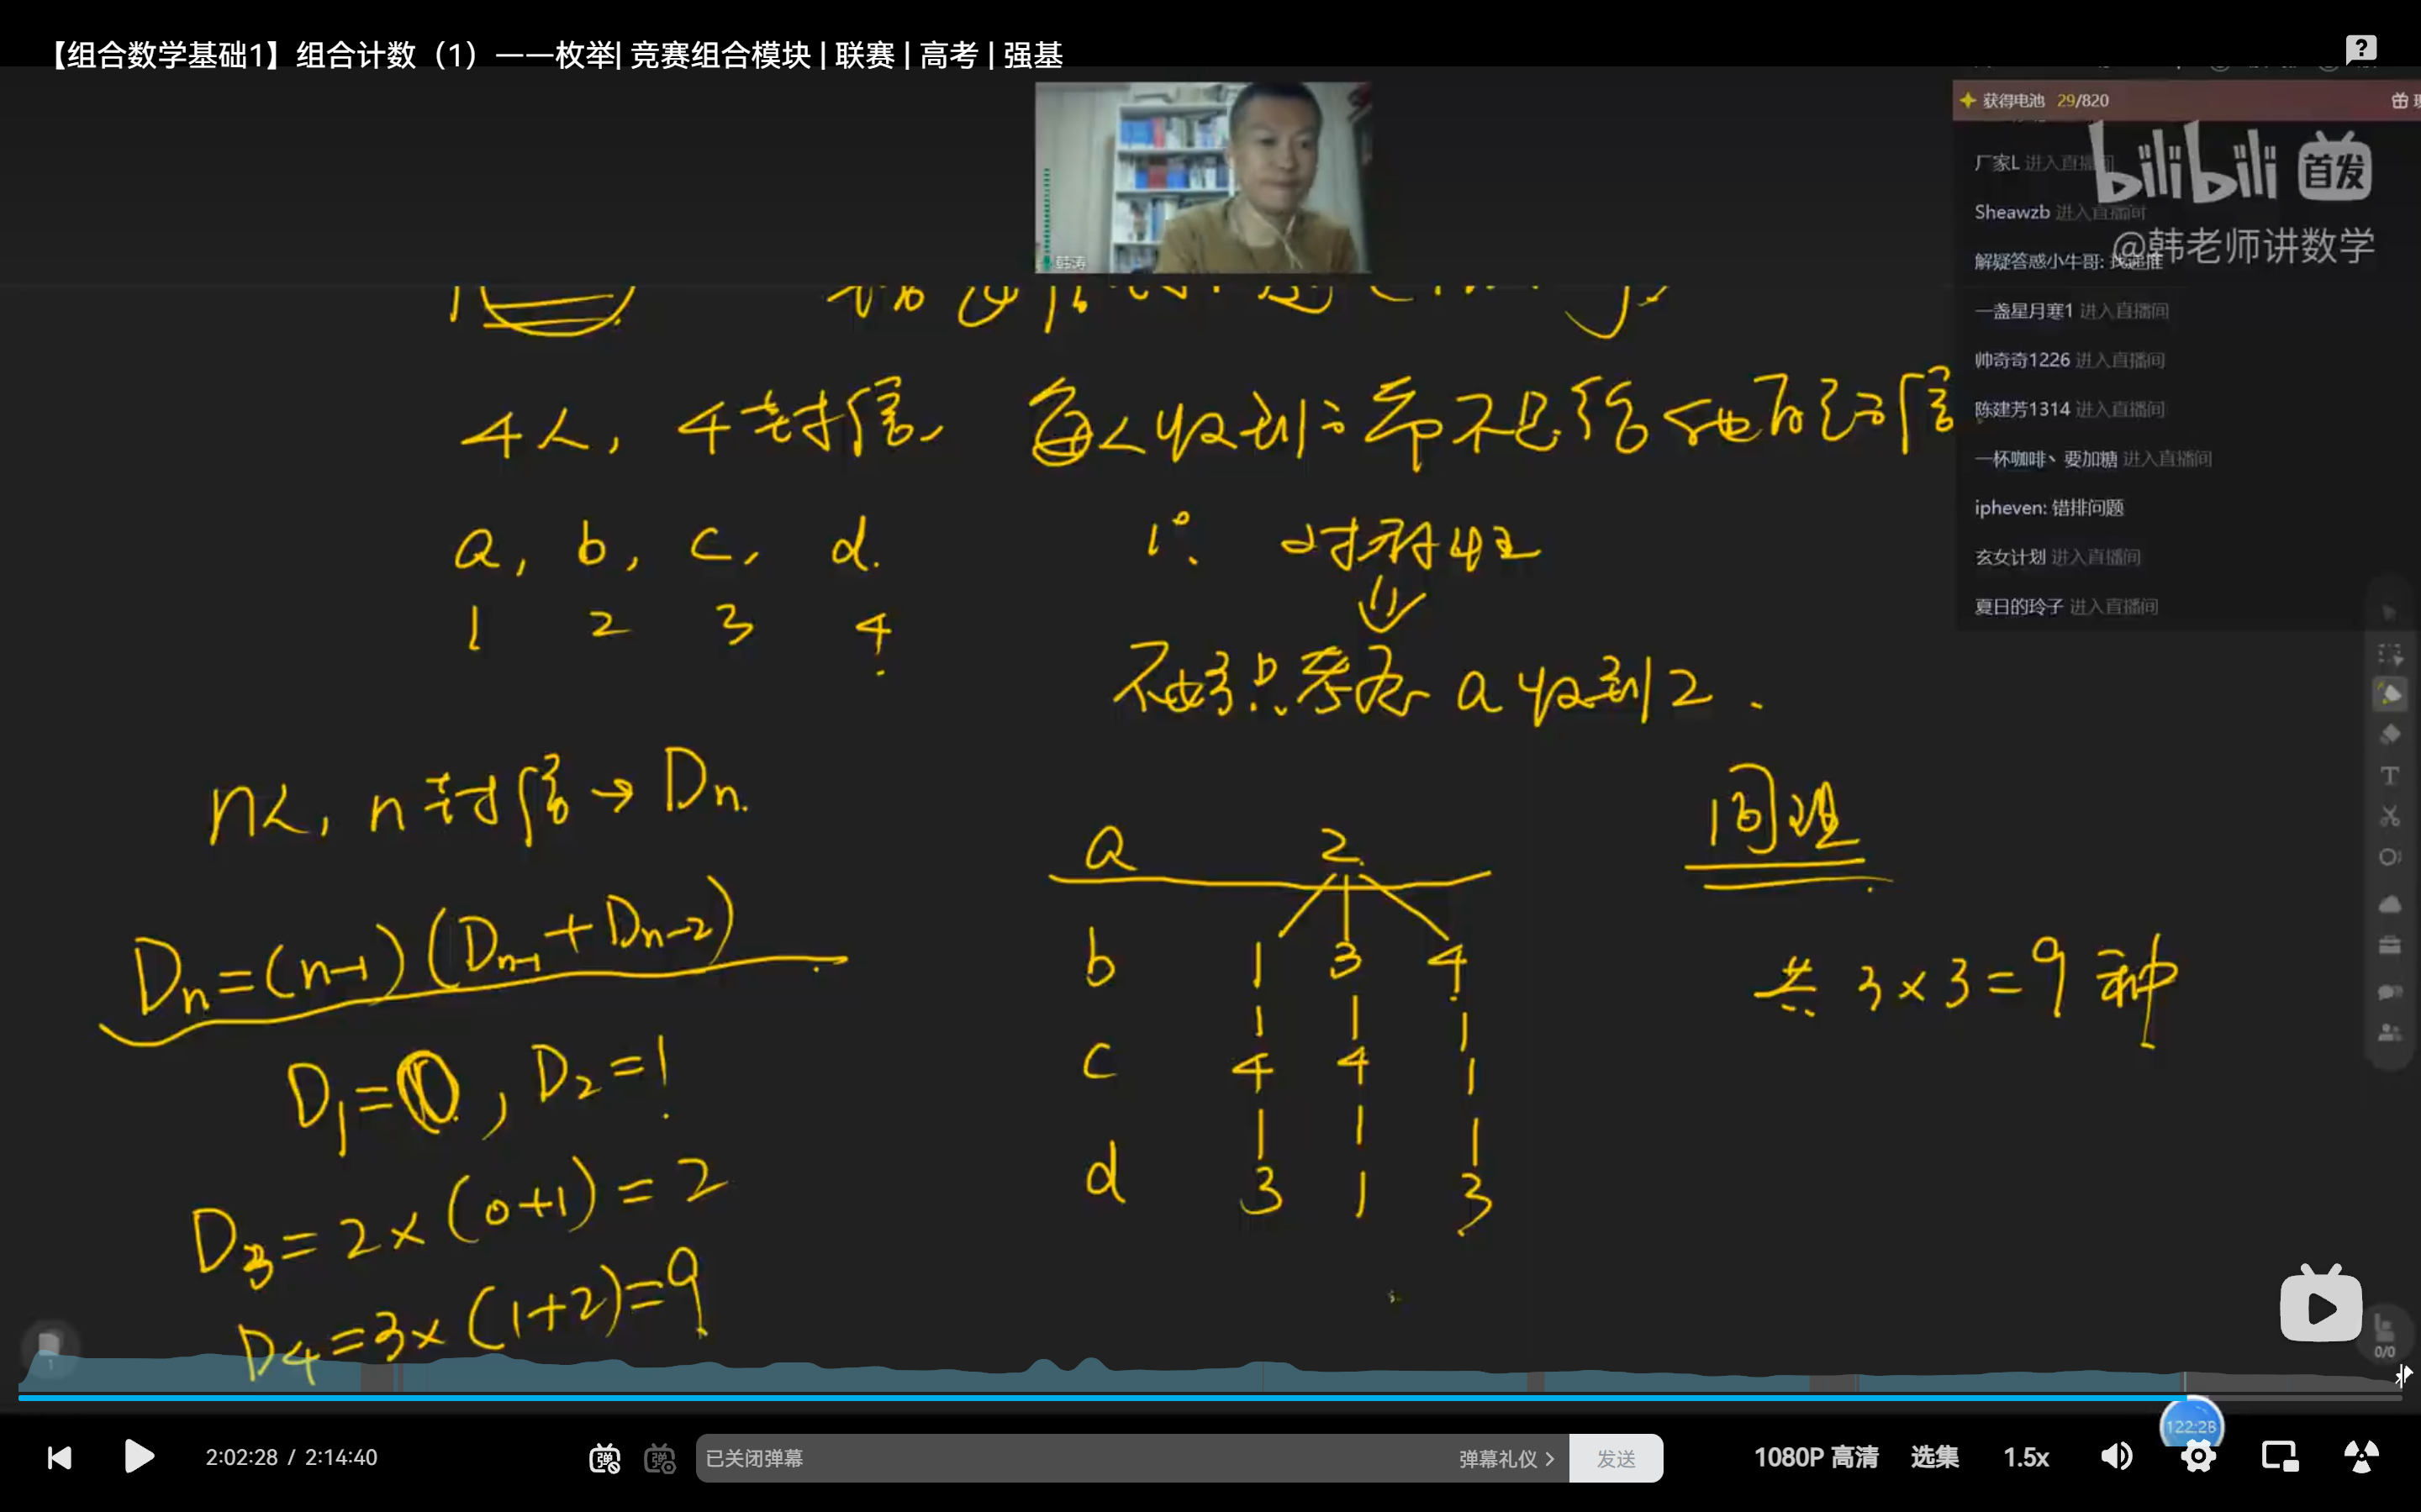 【组合数学基础1】组合计数（1）——枚举| 竞赛组合模块 | 联赛 | 高考 | 强基
获得电池 29/820
厂家L 进入直播间
bilibili 首发
Sheawzb 进入直播间
@韩老师讲数学
解疑答惑小牛哥: 找递推
一盏星月寒1 进入直播间
帅奇奇1226 进入直播间
陈建芳1314 进入直播间
一杯咖啡丶要加糖 进入直播间
ipheven: 错排问题
玄女计划 进入直播间
夏日的玲子 进入直播间
韩涛
4人, 4封信, 每人收到1封不是给他自己的信
a, b, c, d.
1 2 3 4
1°. 对称性
⇓
不妨只考虑 a收到2.
n人, n封信 → Dn.
Dn=(n-1)(Dn-1+Dn-2)
D1=0, D2=1
D3=2×(0+1)=2
D4=3×(1+2)=9
a 2
b 1 3 4
c 4 4 1
d 3 1 3
同理
共 3×3=9种
0/0
1
122:28
2:02:28 / 2:14:40
弹 弹
已关闭弹幕
弹幕礼仪 >
发送
1080P 高清
选集
1.5x